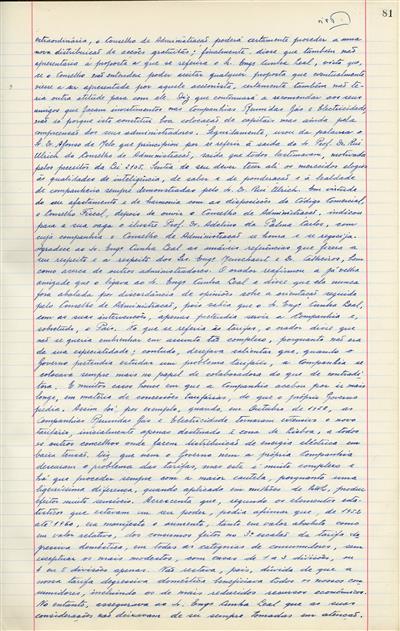 81
extraordinária, o Conselho de Administração poderá certamente proceder a uma
nova distribuição de acções gratuitas; finalmente, disse que também não
apresentaria a proposta a que se referira o Sr. Engº Cunha Leal, visto que,
se o Conselho não entendeu poder aceitar qualquer proposta que eventualmente
viesse a ser apresentada por aquele accionista, certamente também não te-
ria outra atitude para com ele. Diz que continuará a aconselhar aos seus
amigos que façam investimentos nas Companhias Reunidas Gás e Electricidade
não só porque isto constitui boa colocação de capitais mas ainda pela
compreensão dos seus administradores. Seguidamente, usou da palavra o
Sr. Dr. Afonso de Melo que principiou por se referir à saída do Sr. Prof. Dr. Rui
Ulrich do Conselho de Administração, saída que todos lastimaram, motivada
pelos preceitos da Lei 2105. Sentia do seu dever tecer ali os merecidos elogios
às qualidades de inteligência, de valor e de ponderação e à lealdade
de companheiro sempre demonstradas pelo Sr. Dr. Rui Ulrich. Em virtude
do seu afastamento e de harmonia com as disposições do Código Comercial,
o Conselho Fiscal, depois de ouvir o Conselho de Administração, indicou
para a sua vaga o ilustre Prof. Dr. Adelino da Palma Carlos, com
cuja companhia o Conselho de Administração se honra e se regozija.
Agradece ao Sr. Engº Cunha Leal as amáveis referências que fizera a
seu respeito e a respeito dos Srs. Engº e Dr. Calheiros, bem
como acerca de outros administradores. O orador reafirmou a já velha
amizade que o ligava ao Sr. Engº Cunha Leal e disse que ela nunca
fora abalada por discordâncias de opinião sobre a orientação seguida
pelo Conselho de Administração, pois sabia que o Sr. Engº Cunha Leal,
com as suas intervenções, apenas pretendia servir a Companhia e,
sobretudo, o País. No que se referia às tarifas, o orador disse que
não se queria embrenhar em assunto tão complexo, porquanto não era
da sua especialidade; contudo, desejava salientar que, quando o
Governo pretendia estudar um problema tarifário, a Companhia se
colocava sempre mais no papel de colaboradora do que de contradi-
tora. E muitos casos houve em que a Companhia acabou por ir mais
longe, em matéria de concessões tarifárias, do que o próprio Governo
pedia. Assim foi por exemplo, quando, em Outubro de 1950, as
Companhias Reunidas Gás e Electricidade tornaram extensivo o novo
tarifário, inicialmente apenas destinado à cidade de Lisboa, a todos
os outros concelhos onde fazem distribuição de energia eléctrica em
baixa tensão. Diz que nem o Governo nem a própria Companhia
descuram o problema das tarifas, mas este é muito complexo e
há que proceder sempre com a maior cautela, porquanto uma
ligeiríssima diferença, quando aplicada em milhões de kWh, produz
efeitos muito sensíveis. Acrescenta que, segundo os elementos esta-
tísticos que estavam em seu poder, podia afirmar que, de 1952
até 1960, era manifesto o aumento, tanto em valor absoluto como
em valor relativo, dos consumos feitos no 3º escalão da tarifa de-
gressiva doméstica, em todas as categorias de consumidores, sem
exceptuar os mais modestos, com casas de 1 a 3 divisões, ou
4 ou 5 divisões apenas. Não restava, pois, dúvida de que a
nossa tarifa degressiva doméstica beneficiava todos os nossos con-
sumidores, incluindo os de mais reduzidos recursos económicos.
No entanto, assegurava ao Sr. Engº Cunha Leal que as suas
considerações não deixavam de ser sempre tomadas em atenção.